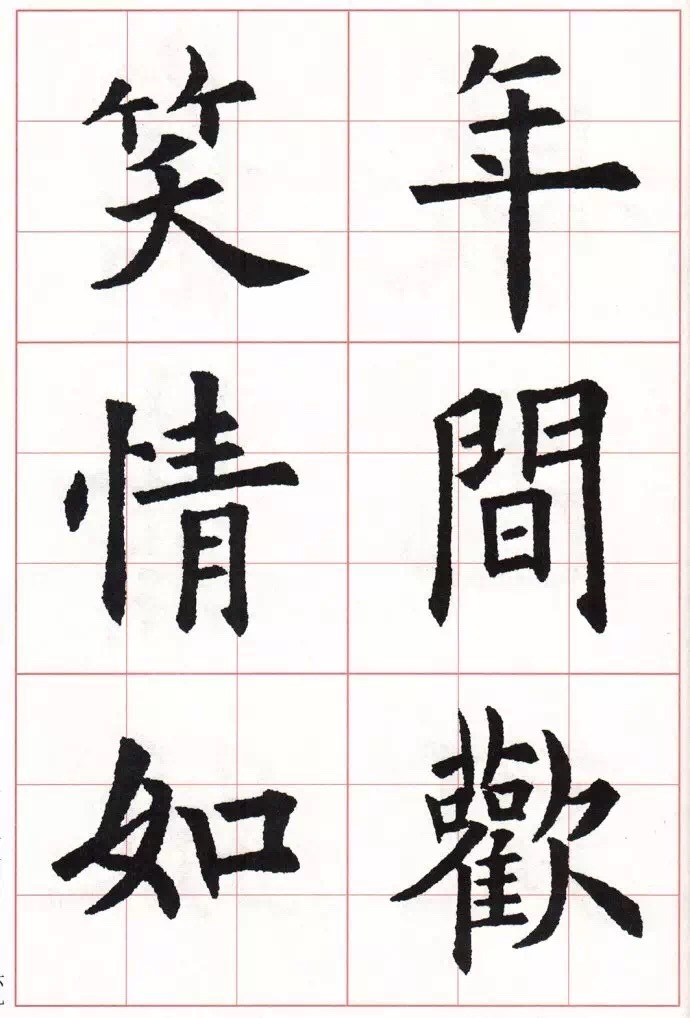 年間歡
笑情如